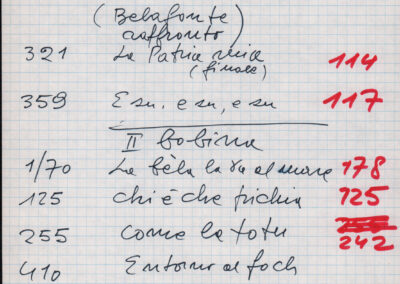 (Belafonte
raffronto)
321 La Patria mia 114
(finale)
359 E su, e su, e su 117
II bobina
1/70 La bèla la va al mare 178
125 chi è che pichia 125
255 come la
242
410 Entorno al foch